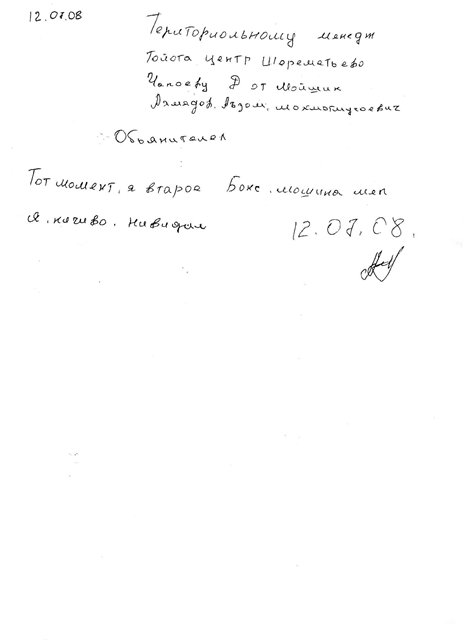 12.07.08
Териториольному менедж
Тойота центр Шереметьево
Чапоеву Д от Мойшик
Ахмедов. Аъзом. мохмотмусоевич
Обьянителел
Тот момент. я второе Бокс. мошина меп
Я. ничиво. нивидал
12.07.08.